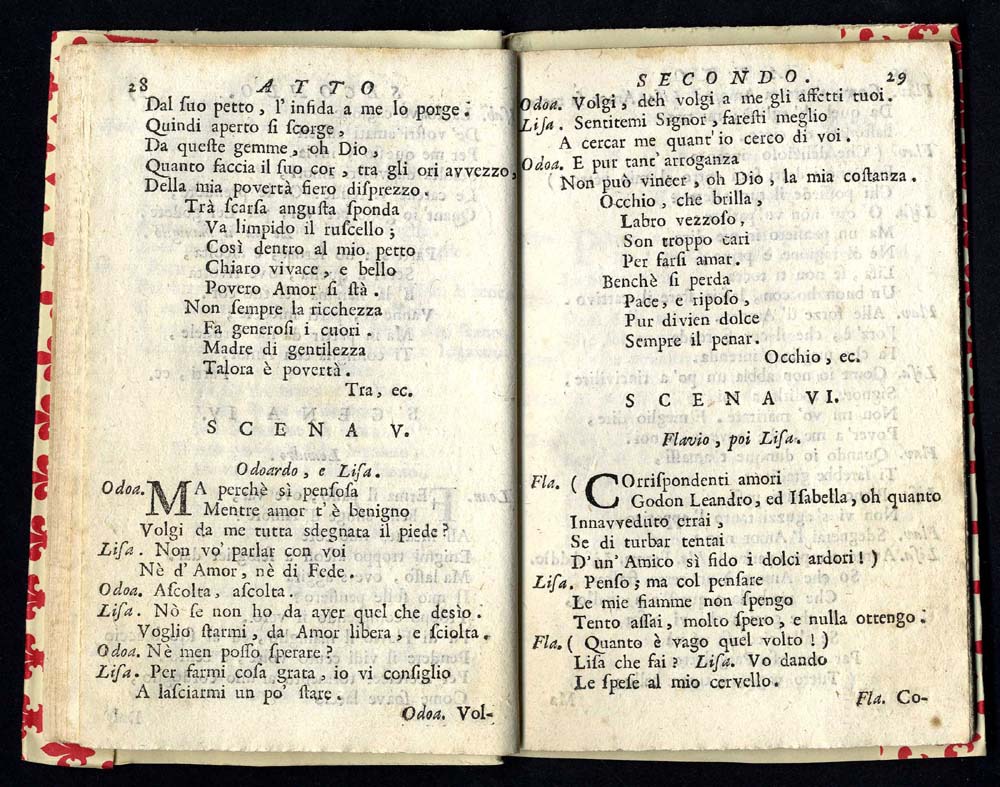 28 ATTO
Dal ſuo petto, l'infida a me lo porge:
Quindi aperto ſi ſcorge,
Da queſte gemme, oh Dio,
Quanto faccia il ſuo cor, tra gli ori avvezzo,
Della mia povertà fiero diſprezzo.
Trà ſcarſa anguſta ſponda
Va limpido il ruſcello;
Così dentro al mio petto
Chiaro vivace, e bello
Povero Amor ſi ſtà.
Non ſempre la ricchezza
Fa generoſi i cuori.
Madre di gentilezza
Talora è povertà.
Tra, ec.
SCENA V.
Odoardo, e Liſa.
Odoa. MA perchè sì penſoſa
Mentre amor t'è benigno
Volgi da me tutta sdegnata il piede?
Liſa. Non vo' parlar con voi
Nè d'Amor, nè di Fede.
Odoa. Aſcolta, aſcolta.
Liſa. Nò ſe non ho da aver quel che desìo.
Voglio ſtarmi, da Amor libera, e ſciolta.
Odoa. Nè men poſſo ſperare?
Liſa. Per farmi coſa grata, io vi conſiglio
A laſciarmi un po' ſtare.
Odoa. Vol-
SECONDO. 29
Odoa. Volgi, deh volgi a me gli affetti tuoi.
Liſa. Sentitemi Signor, fareſti meglio
A cercar me quant'io cerco di voi.
Odoa. E pur tant'arroganza
Non può vincer, oh Dio, la mia coſtanza.
Occhio, che brilla,
Labro vezzoſo,
Son troppo cari
Per farſi amar.
Benchè ſi perda
Pace, e ripoſo,
Pur divien dolce
Sempre il penar.
Occhio, ec.
SCENA VI.
Flavio, poi Liſa.
Fla. (COrriſpondenti amori
Godon Leandro, ed Iſabella, oh quanto
Innavveduto errai,
Se di turbar tentai
D'un'Amico sì fido i dolci ardori!)
Liſa. Penſo; ma col penſare
Le mie fiamme non ſpengo
Tento aſſai, molto ſpero, e nulla ottengo.
Fla. (Quanto è vago quel volto!)
Liſa che fai? Liſa. Vo dando
Le ſpeſe al mio cervello.
Fla. Co-